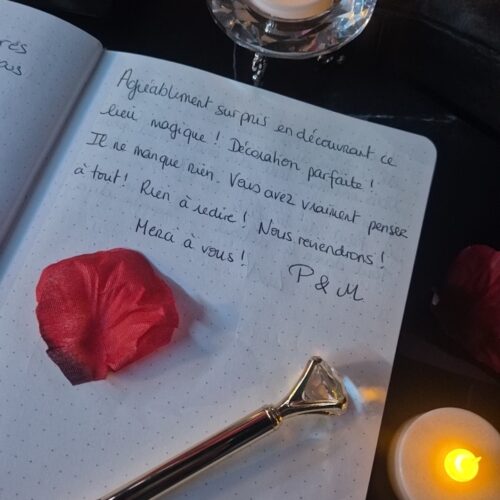 rés
ais
Agréablement surpris en découvrant ce
lieu magique ! Décoration parfaite !
Il ne manque rien. Vous avez vraiment penser
à tout ! Rien à redire ! Nous reviendrons !
Merci à vous !
P & M